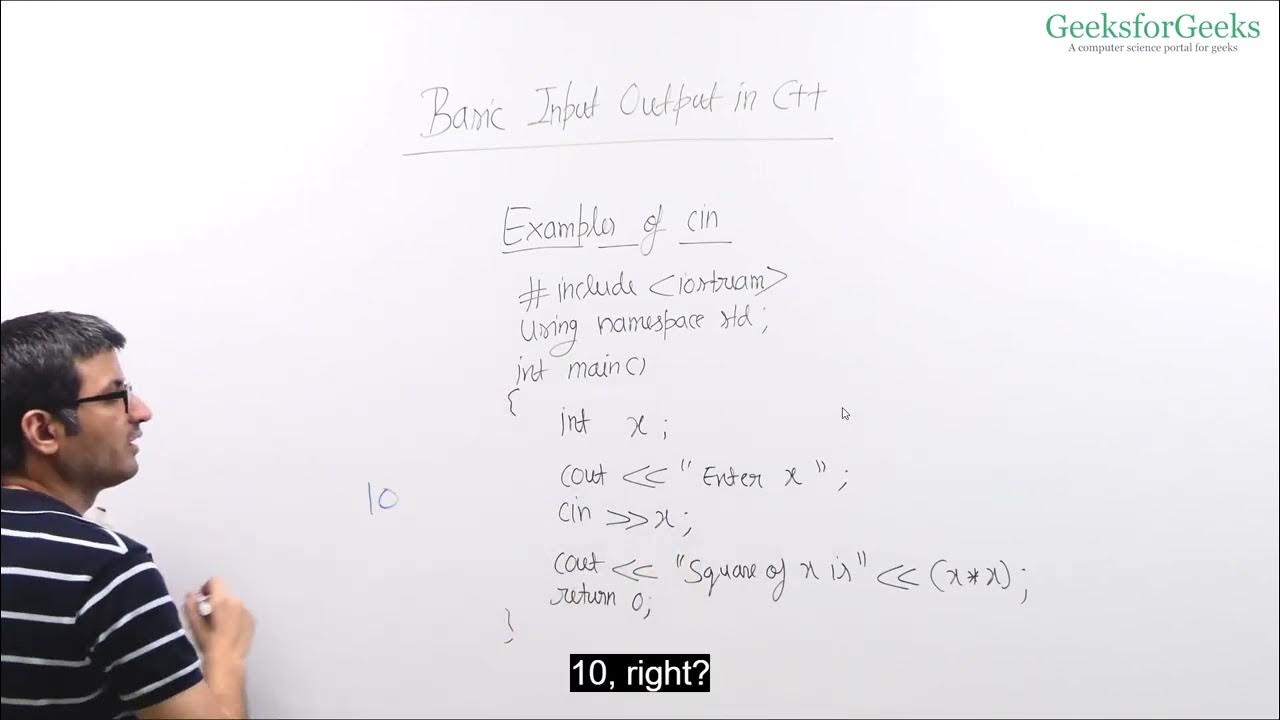 GeeksforGeeks
A computer science portal for geeks
Basic Input Output in C++
Examples of cin
# include <iostream>
using namespace std;
int main()
{
int x;
cout << "Enter x";
10
cin >> x;
cout << "Square of x is" << (x*x);
return 0;
}
10, right?